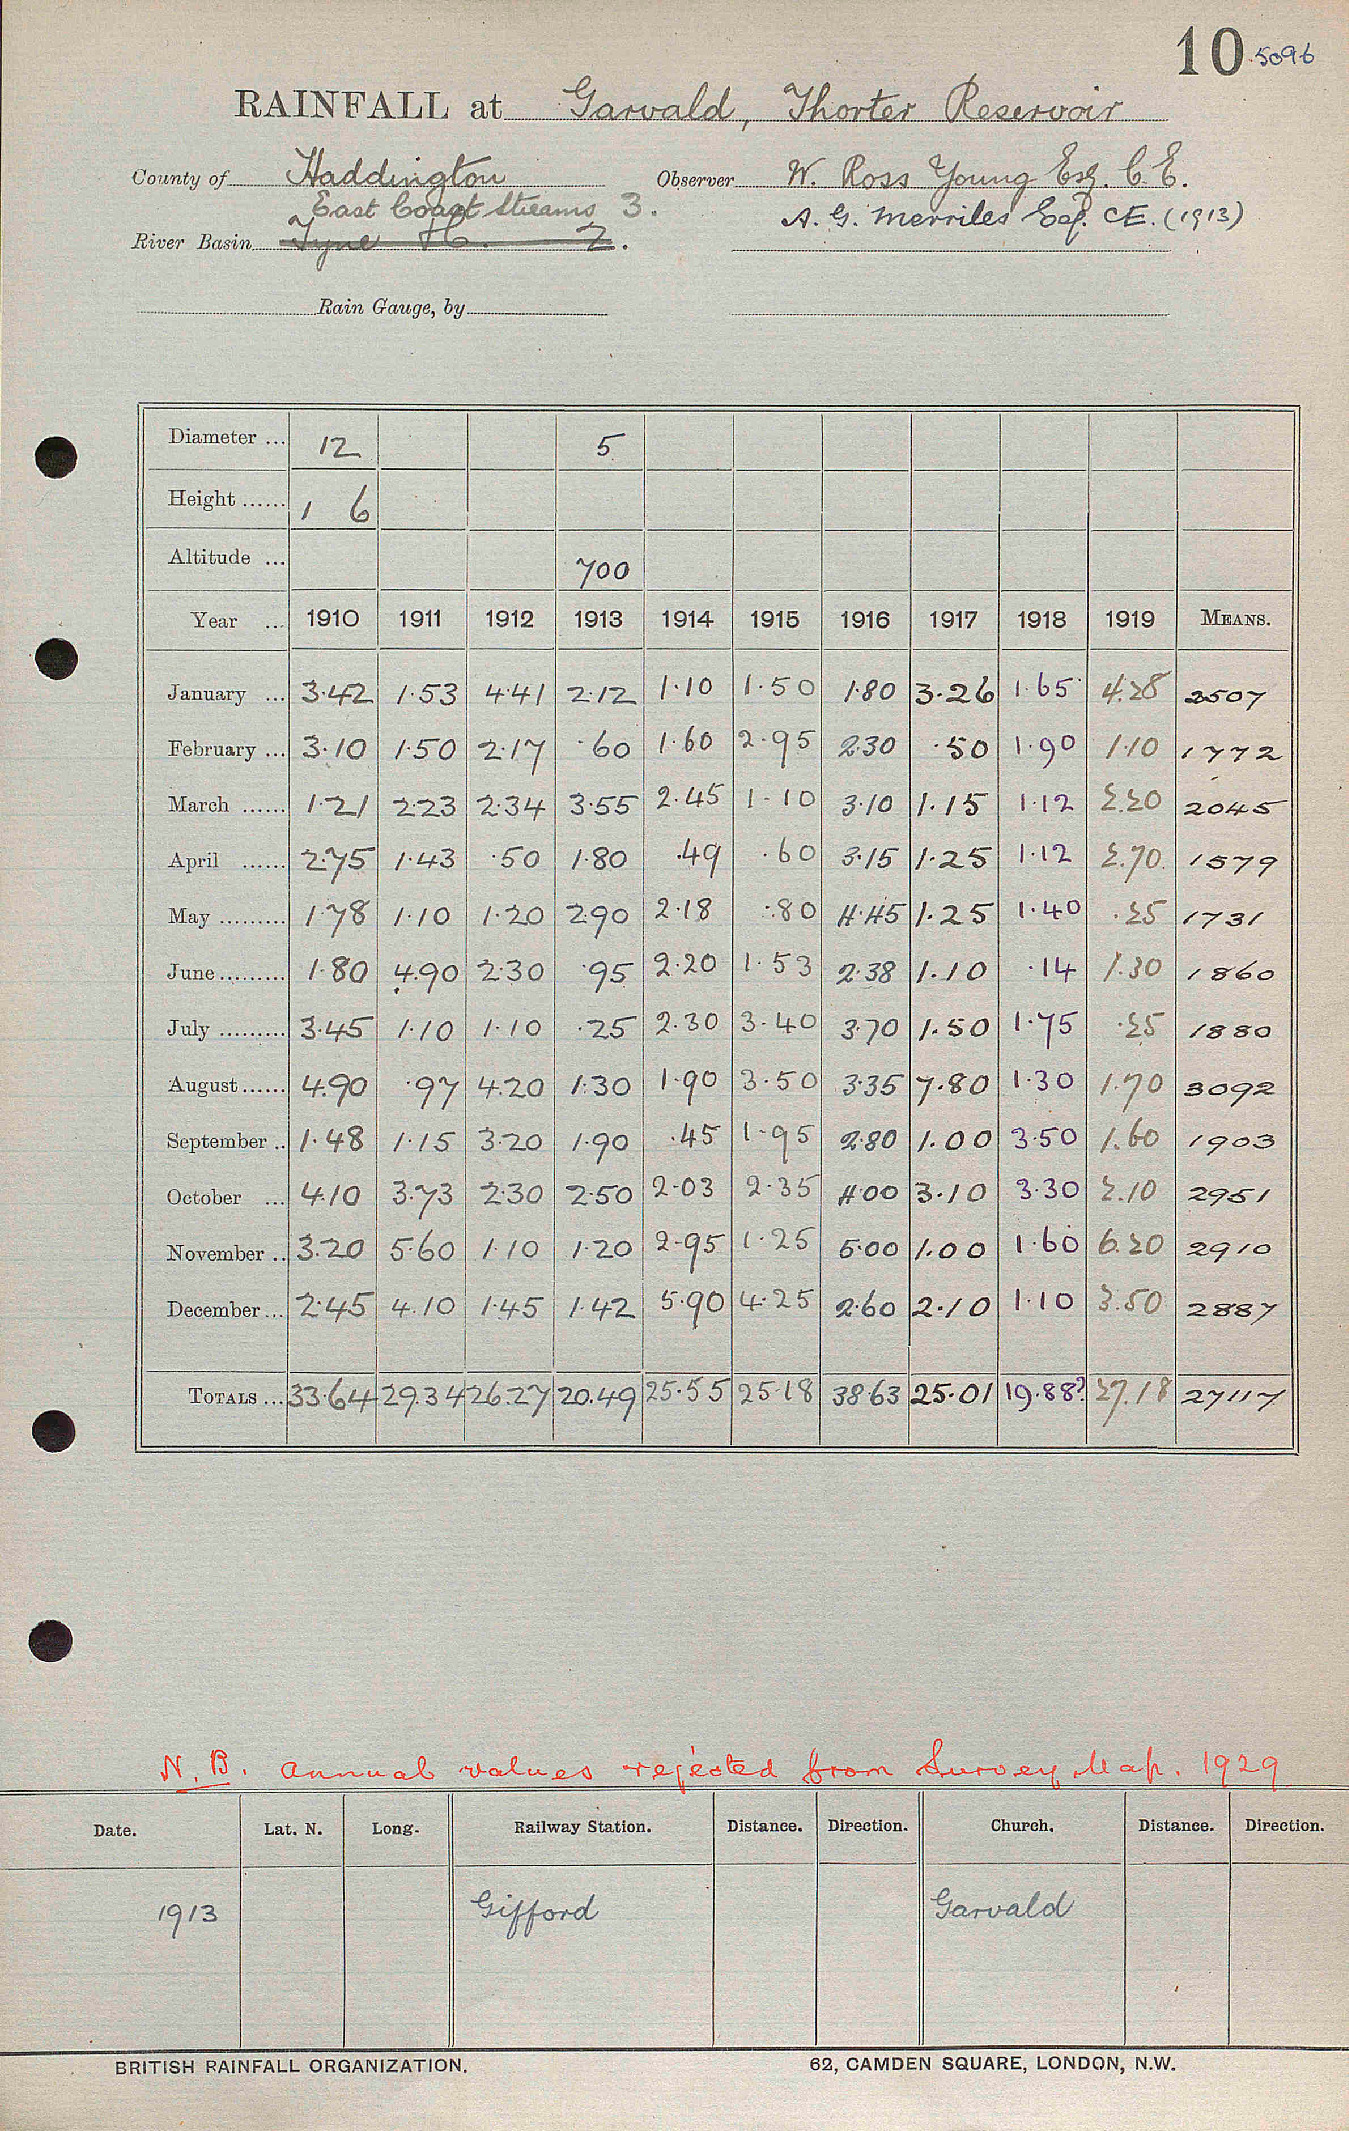 10 5096
RAINFALL at Garvald, Thorter Reservoir
County of Haddington Observer W. Ross Young Esq. C.E.
East Coast Streams 3. A. G. Merriles Esq. CE. (1913)
River Basin Tyne &c. 2.
Rain Gauge, by
Diameter ... 12 5
Height ...... 1 6
Altitude ... 700
Year ... 1910 1911 1912 1913 1914 1915 1916 1917 1918 1919 MEANS.
January ... 3·42 1·53 4·41 2·12 1·10 1·50 1·80 3·26 1·65 4.28 2507
February ... 3·10 1·50 2·17 ·60 1·60 2·95 2·30 ·50 1·90 1·10 1772
March ...... 1·21 2·23 2·34 3·55 2·45 1·10 3·10 1·15 1·12 2.20 2045
April ...... 2·75 1·43 ·50 1·80 ·49 ·60 3·15 1·25 1·12 2.70 1579
May ......... 1·78 1·10 1·20 2·90 2·18 ·80 4·45 1·25 1·40 ·25 1731
June ......... 1·80 4·90 2·30 ·95 2·20 1·53 2·38 1·10 ·14 1·30 1860
July ......... 3·45 1·10 1·10 ·25 2·30 3·40 3·70 1·50 1·75 ·25 1880
August ...... 4·90 ·97 4·20 1·30 1·90 3·50 3·35 7·80 1·30 1·70 3092
September .. 1·48 1·15 3·20 1·90 ·45 1·95 2·80 1·00 3·50 1.60 1903
October ... 4·10 3·73 2·30 2·50 2·03 2·35 4·00 3·10 3·30 2.10 2951
November .. 3·20 5·60 1·10 1·20 2·95 1·25 6·00 1·00 1·60 6.20 2910
December ... 2·45 4·10 1·45 1·42 5·90 4·25 2·60 2·10 1·10 3.50 2887
TOTALS ... 33·64 29.34 26·27 20.49 25·55 25·18 38·63 25·01 19·88? 27.18 27117
N.B. Annual values rejected from Survey Map. 1929
Date. Lat. N. Long. Railway Station. Distance. Direction. Church. Distance. Direction.
1913 Gifford Garvald
BRITISH RAINFALL ORGANIZATION. 62, CAMDEN SQUARE, LONDON, N.W.